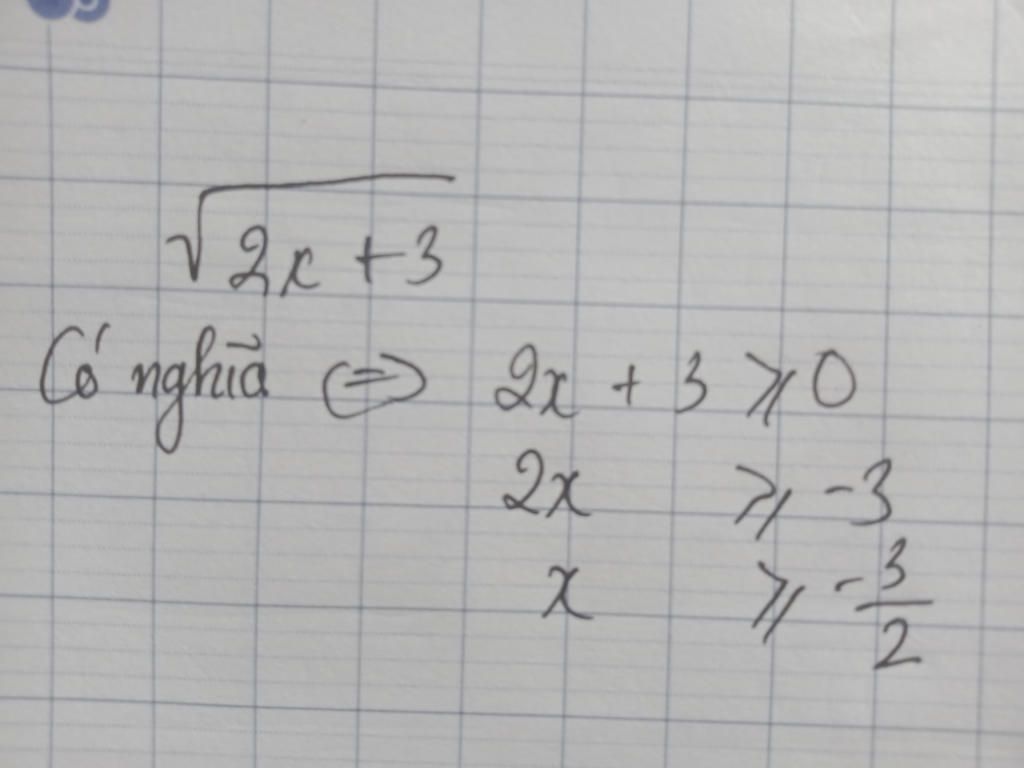 √2x + 3
Có nghĩa ⇔ 2x + 3 ⩾ 0
2x ⩾ -3
x ⩾ -3/2